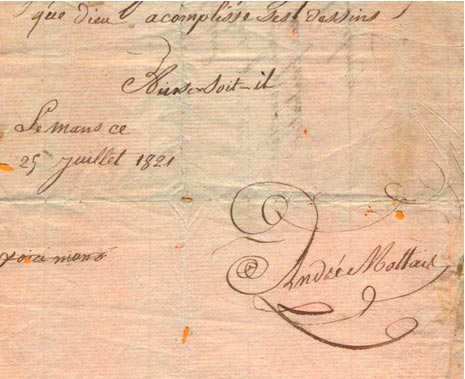 que dieu acomplisse ses dessins
Ainsi-soit-il
Le mans ce
25 juillet 1821
André Mottais